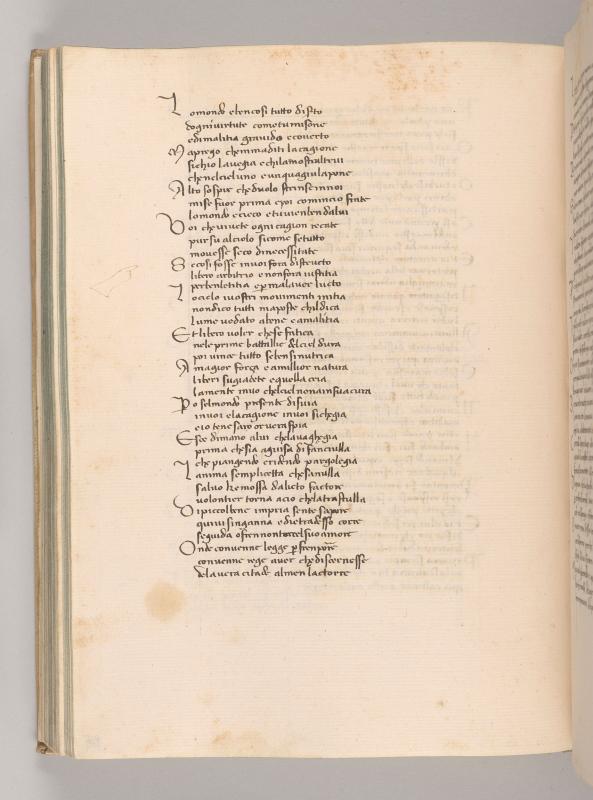 Lomondo elencosi tutto diserto
dogni virtute come tu misone
edi malitia gravido ecoverto
Ma priego chemmaditi lacagione
sichio laveggia echilamostraltrui
chenelcieluno eunquagiulapone
Alto sospir cheduolo strinse innoi
mise fuor prima epoi comincio frate
lomondo ecieco etuvienbendalui
Voi chevivete ogni cagion recate
pur su alcielo sicome setutto
movesse seco dinecessitate
Secosi fosse invoi fora distructo
libero arbitrio enonfora iustitia
perbenletitia e permalaver lucto
Locielo ivostri movimenti initia
nondico tutti maposto childica
lume vedato abene eamalitia
Et libero voler chese fatica
nele prime battallie delciel dura
poi vince tutto seben sinutrica
A magior força eamillior natura
liberi sugiacete equella cria
lamente invoi chelciel nonainsuacura
Po selmondo presente disvia
invoi elacagione invoi sicheggia
eio tene saro orveraspia
Esce dimano alui chelavagheggia
prima chesia aguisa di fanciulla
che piangendo eridendo pargoleggia
Lanima semplicetta chesanulla
salvo kemossa dalieto factore
volontier torna acio chelatrastulla
Di piccolbene impria sente sapore
quivi singanna edietro adesso corre
seguida ofren nontorcelsuo amore
Onde convenne legge per fren porre
convenne rege aver che discernesse
dela vera citade almen latorre